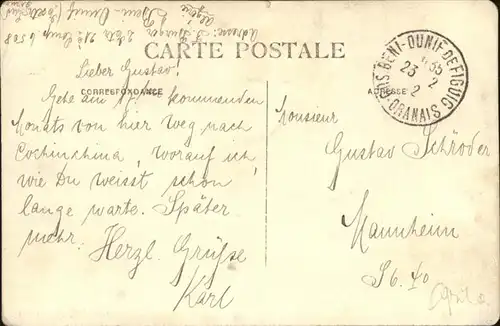 Adresse: 2 Etr. 21e Comp. 6508
Algérie Beni Ounif
CARTE POSTALE
CORRESPONDANCE
ADRESSE
BENI-OUNIF-DE-FIGUIG
23 2
2
ORANAIS
Lieber Gustav!
Gehe am kommenden
Monats von hier weg nach
Cochinchina, worauf ich,
wie Du weisst schon
lange warte. Später
mehr. Herzl. Grüsse
Karl
Monsieur
Gustav Schröder
Mannheim